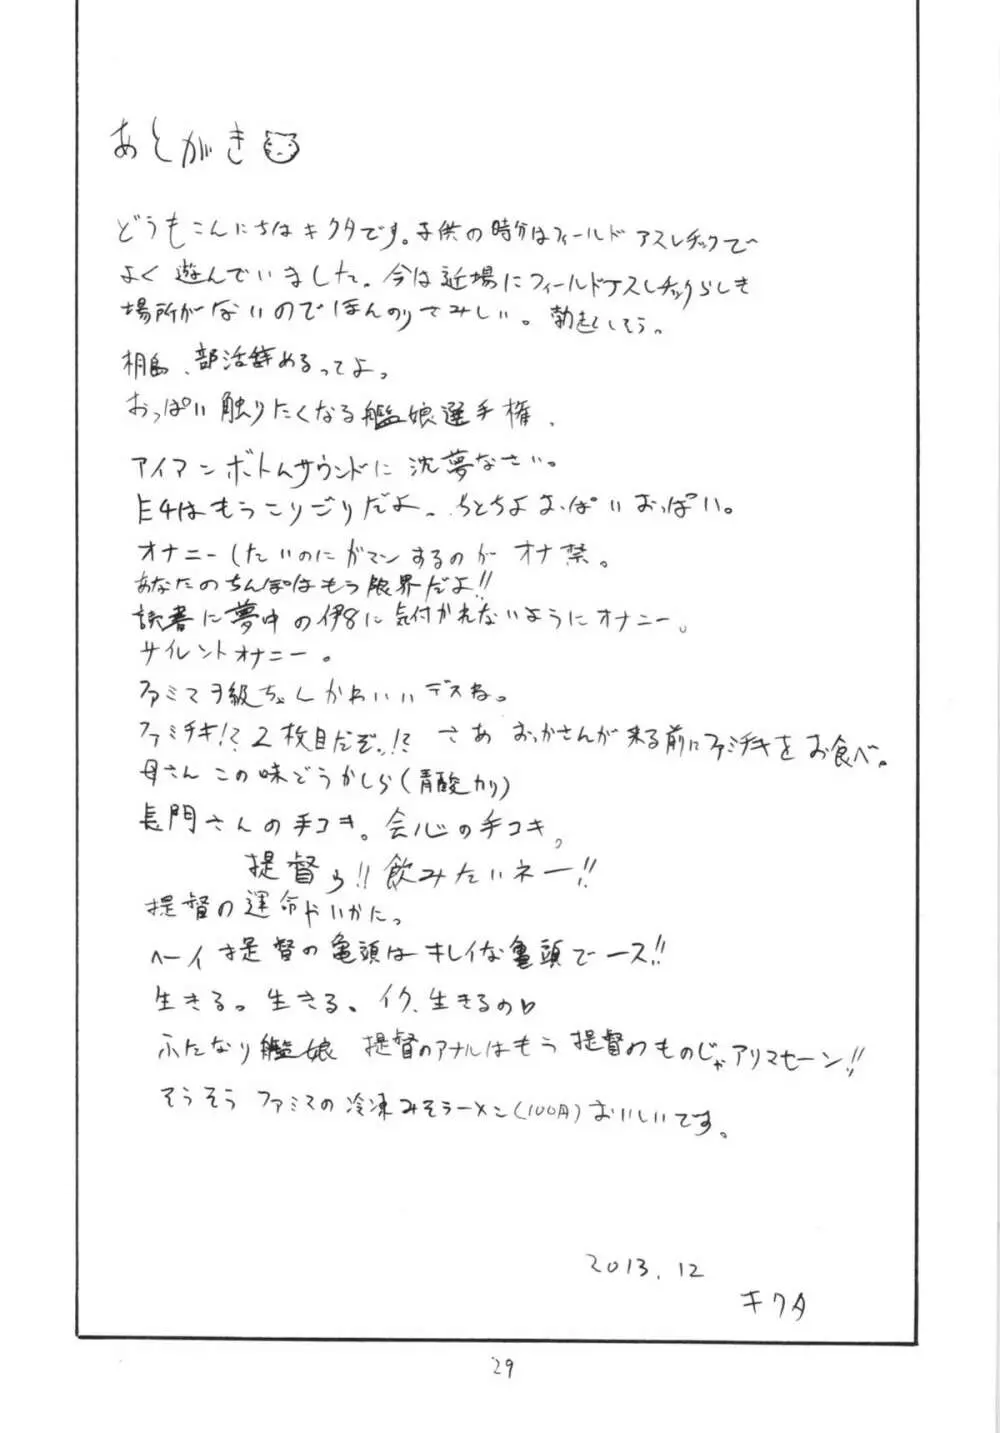 あとがき
どうもこんにちはキクタです。子供の時分はフィールドアスレチックで
よく遊んでいました。今は近場にフィールドアスレチックらしき
場所がないのでほんのりさみしい。勃起しそう。
桐島、部活辞めるってよ。
おっぱい触りたくなる艦娘選手権、
アイアンボトムサウンドに沈夢なさい。
E4はもうこりごりだよ〜ちとちよおっぱいおっぱい。
オナニーしたいのにガマンするのがオナ禁。
あなたのちんぽはもう限界だよ!!
読書に夢中の伊8に気付かれないようにオナニー。
サイレントオナニー。
ファミマヲ級ちゃんかわいいデスね。
ファミチキ!?2枚目だぞっ!?さあおっかさんが来る前にファミチキをお食べ。
母さんこの味どうかしら(青酸カリ)
長門さんの手コキ。会心の手コキ。
提督ゥ!!飲みたいネー!!
提督の運命やいかに。
ヘーイ提督の亀頭はキレイな亀頭でース!!
生きる。生きる、イク、生きるの♡
ふたなり艦娘 提督のアナルはもう提督のものじゃアリマセーン!!
そうそうファミマの冷凍みそラーメン(100円)おいしいです。
2013.12
キクタ
29